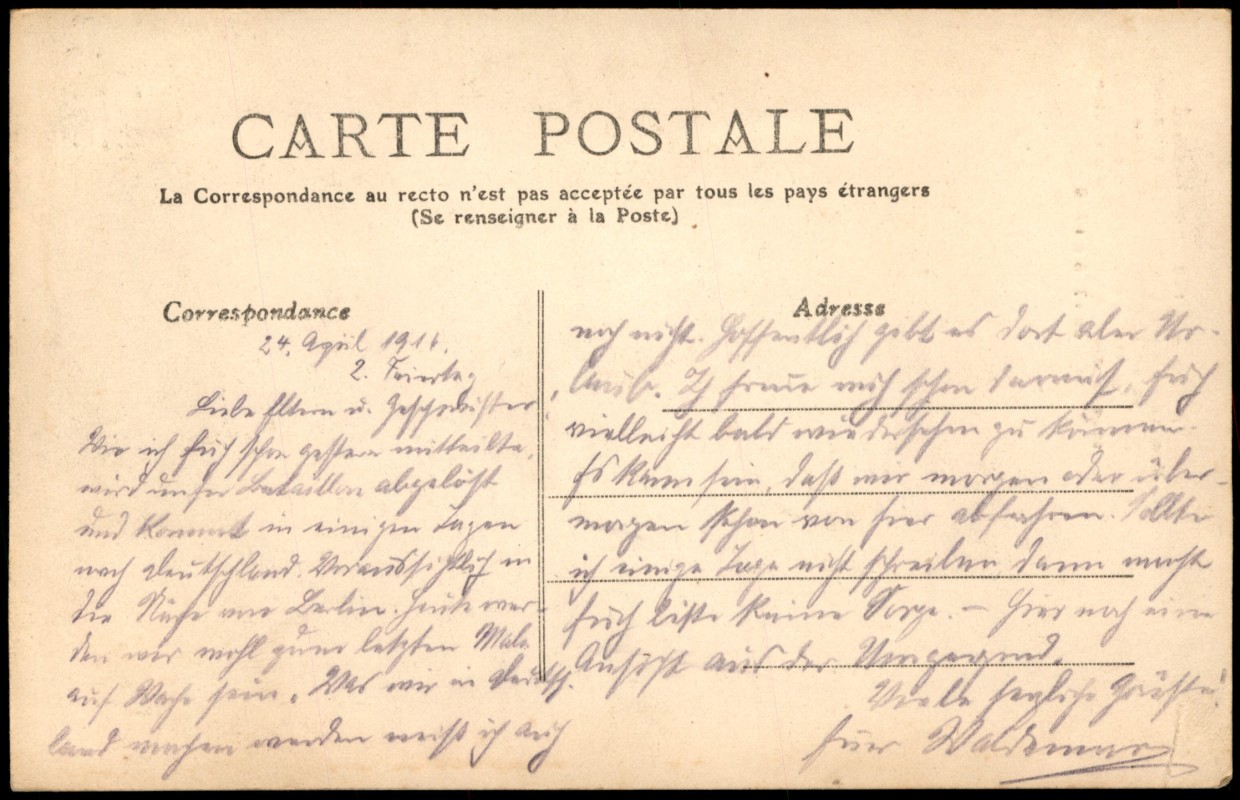 CARTE POSTALE
La Correspondance au recto n'est pas acceptée par tous les pays étrangers
(Se renseigner à la Poste)
Correspondance
Adresse
24. April 1916.
2. Feiertag
Liebe Eltern u. Geschwister
Wie ich Euch schon gestern mitteilte,
wird unser Bataillon abgelöst
und kommt in einigen Tagen
nach Deutschland. Voraussichtlich in
die Nähe von Berlin. Heute wer-
den wir wohl zum letzten Male
auf Wache sein. Was wir in Deutsch-
land machen werden weiß ich auch
noch nicht. Hoffentlich gibt es dort aber Ur-
laub. Ich freue mich schon darauf, Euch
vielleicht bald wiedersehen zu können.
Es kann sein, daß wir morgen oder über-
morgen schon von hier abfahren. Sollte
ich einige Tage nicht schreiben, dann macht
Euch bitte keine Sorge. – Hier noch eine
Ansicht aus der Umgegend.
Viele herzliche Grüße
Euer Waldemar